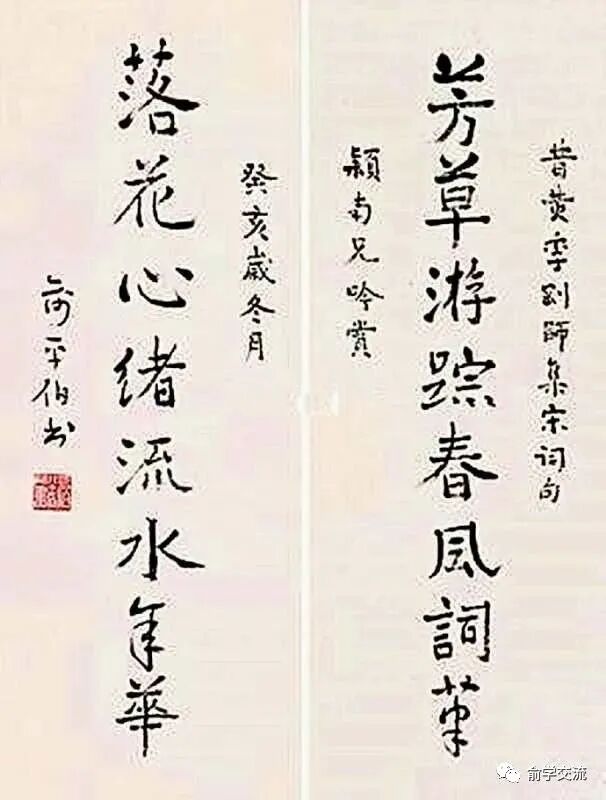 昔黄季剛師集宋词句
芳草游踪春風詞筆
穎南兄吟賞
癸亥歲冬月
落花心緒流水年華
俞平伯书
俞学交流